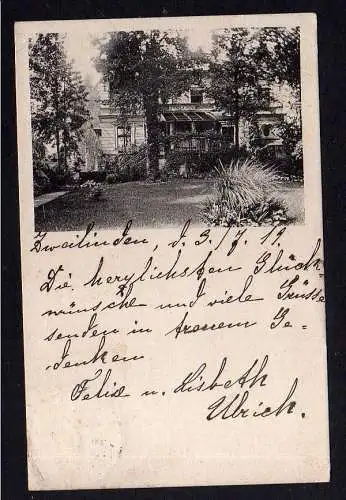 Zweilinden, d. 3./7. 19.
Die herzlichsten Glück-
wünsche und viele Grüsse
senden in treuem Ge-
denken
Felix u. Lisbeth
Ulrich.